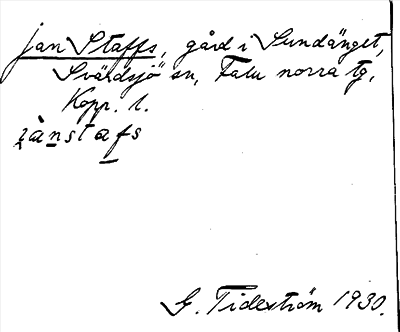 Jan Staffs, gård i Sundänget,
Svärdsjö sn, Falu norra tg,
Kopp. l.
G. Tideström 1930.